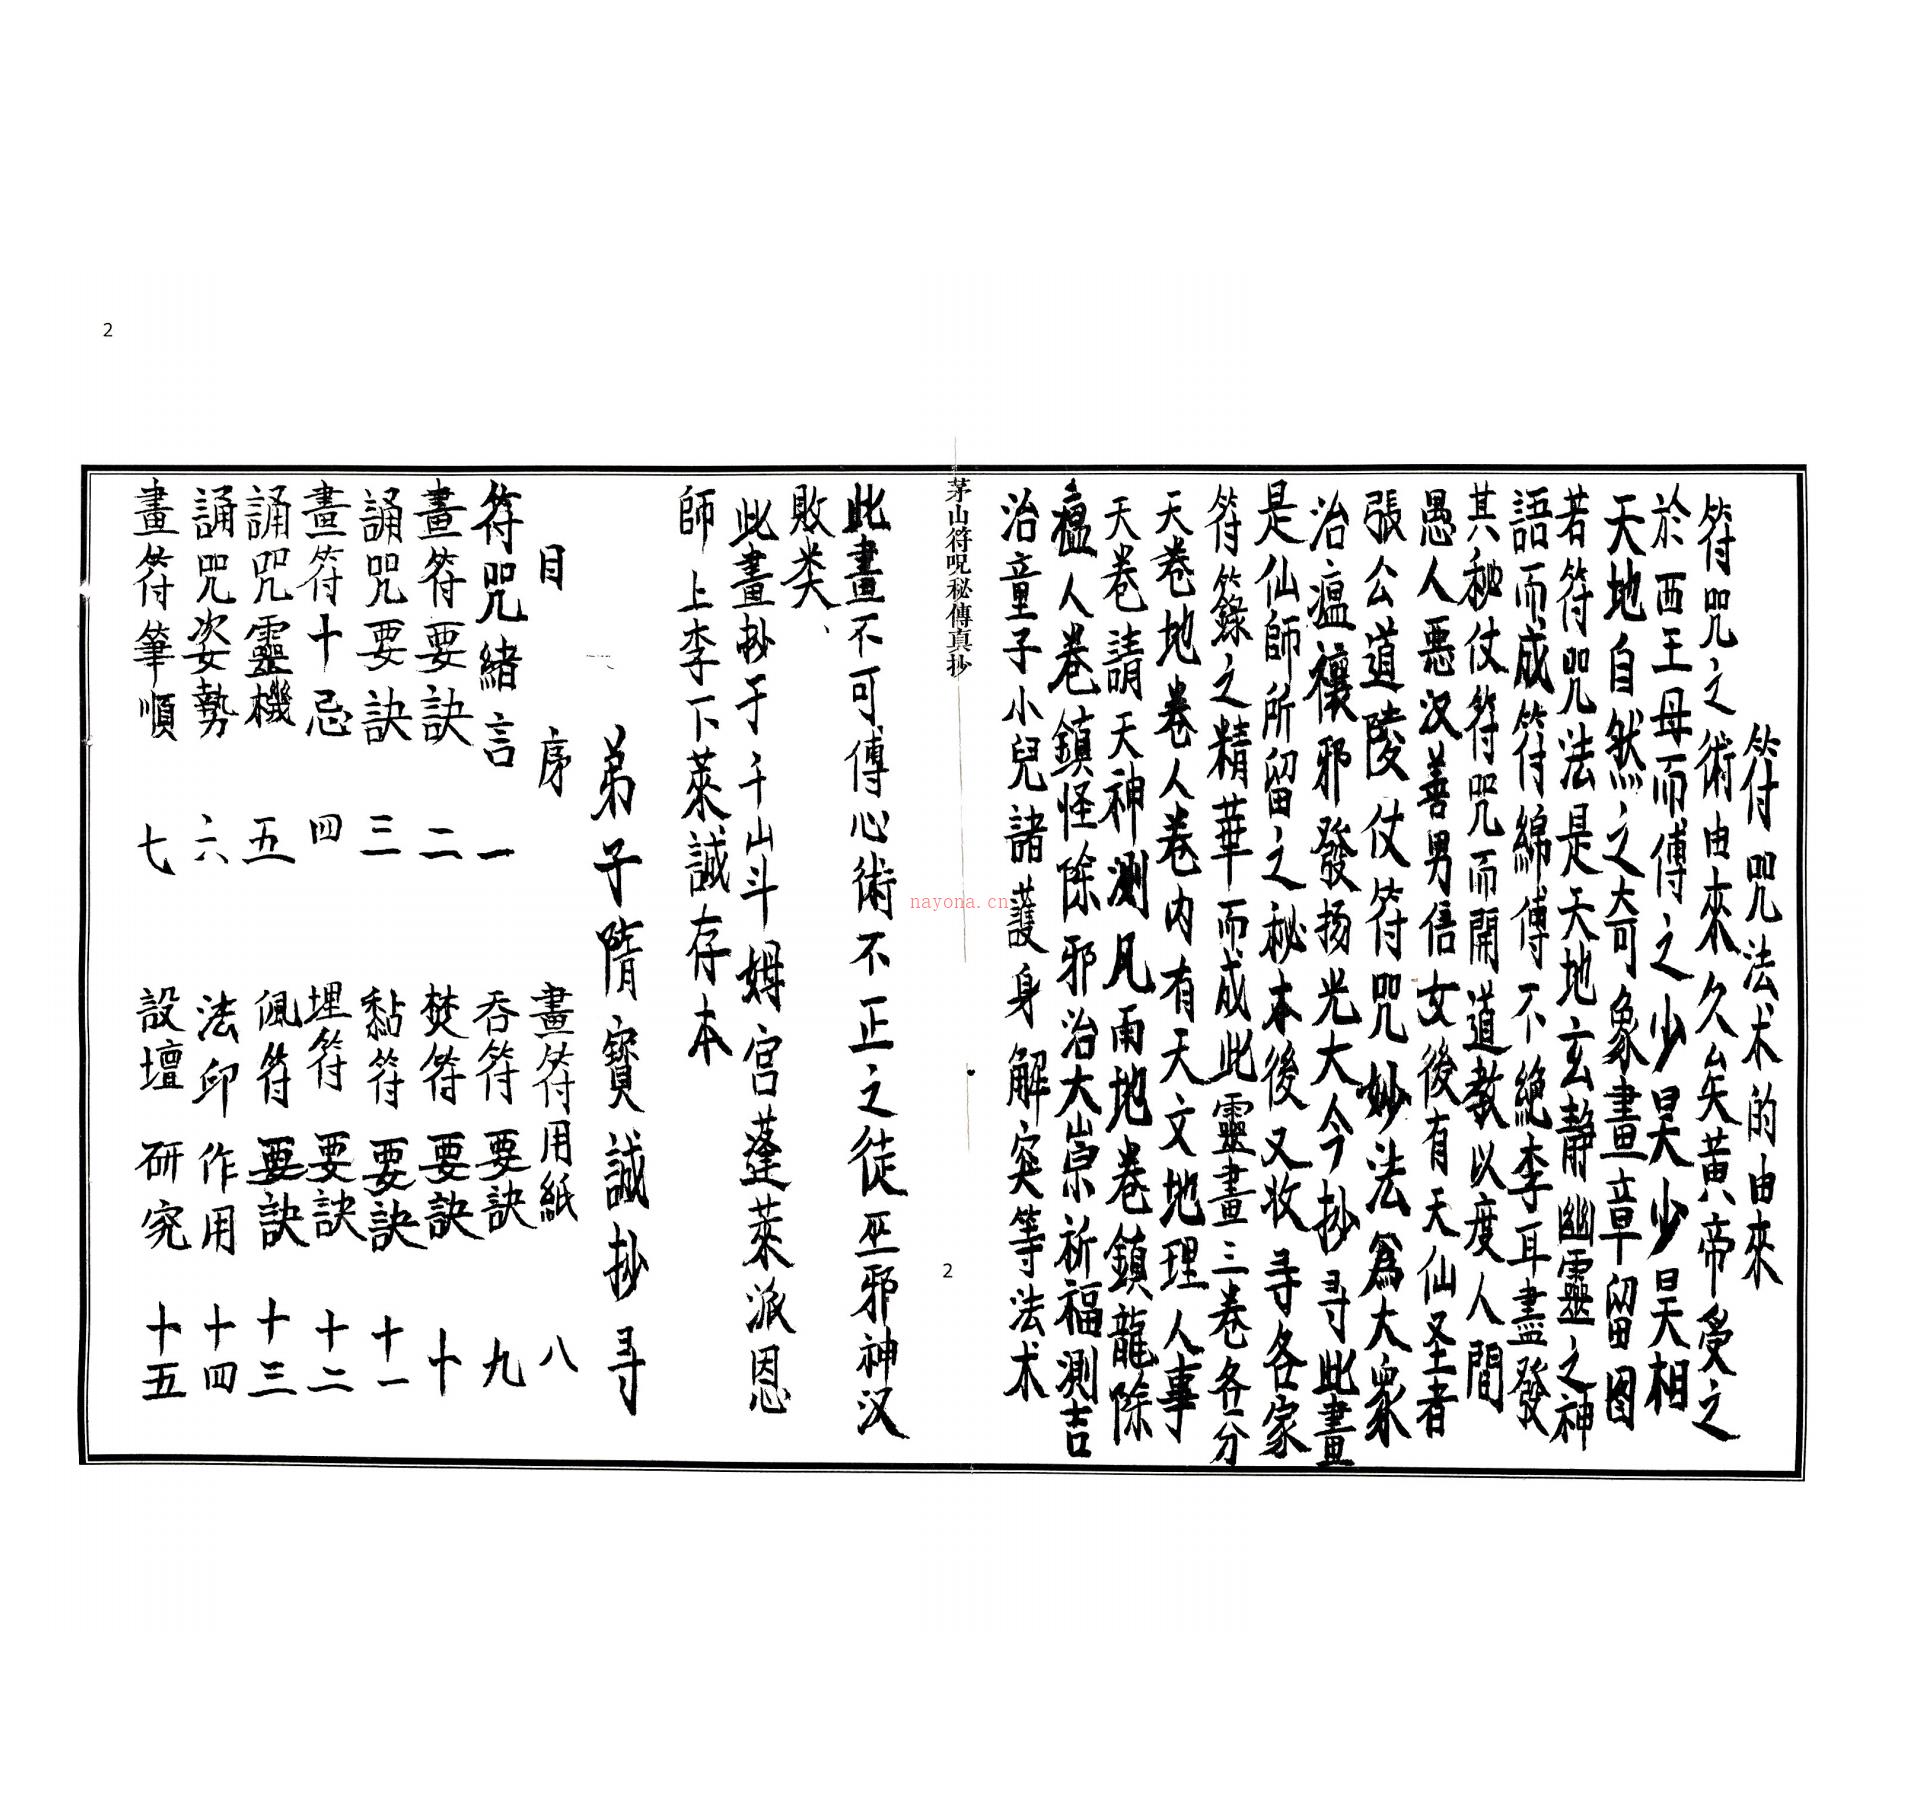 符咒法术的由來
符咒之術由來久矣黃帝受之
於西王母而傅之少昊少昊相
天地自然之奇象畫章留图
若符咒法是天地玄靜幽靈之神
語而成符綿傅不絶李耳盡發
其秘仗符咒而開道教以度人間
愚人惡汉善男信女後有天仙圣者
張公道陵仗符咒妙法為大衆
治瘟禳邪發扬光大今抄寻此畫
是仙師所留之秘本後又收寻各家
符籙之精華而成此靈畫三卷各分
天卷地卷人卷内有天文地理人事
天卷請天神測凡雨地卷鎮龍除
瘟人卷鎮怪除邪治大祟祈福測吉
治童子小兒諸護身解突等法术
茅山符呪秘傳真抄
2
此畫不可傅心術不正之徒巫邪神汉
敗类、
此畫抄于千山斗姆宫蓬萊派恩
師上李下萊誠存本
弟子隋寶誠抄寻
目序
符咒緒言 一
畫符要訣 二
誦咒要訣 三
畫符十忌 四
誦咒靈機 五
誦咒姿勢 六
畫符筆順 七
畫符用紙 八
吞符要訣 九
焚符要訣 十
黏符要訣 十一
埋符要訣 十二
佩符要訣 十三
法印作用 十四
設壇研究 十五
2
nayona.cn